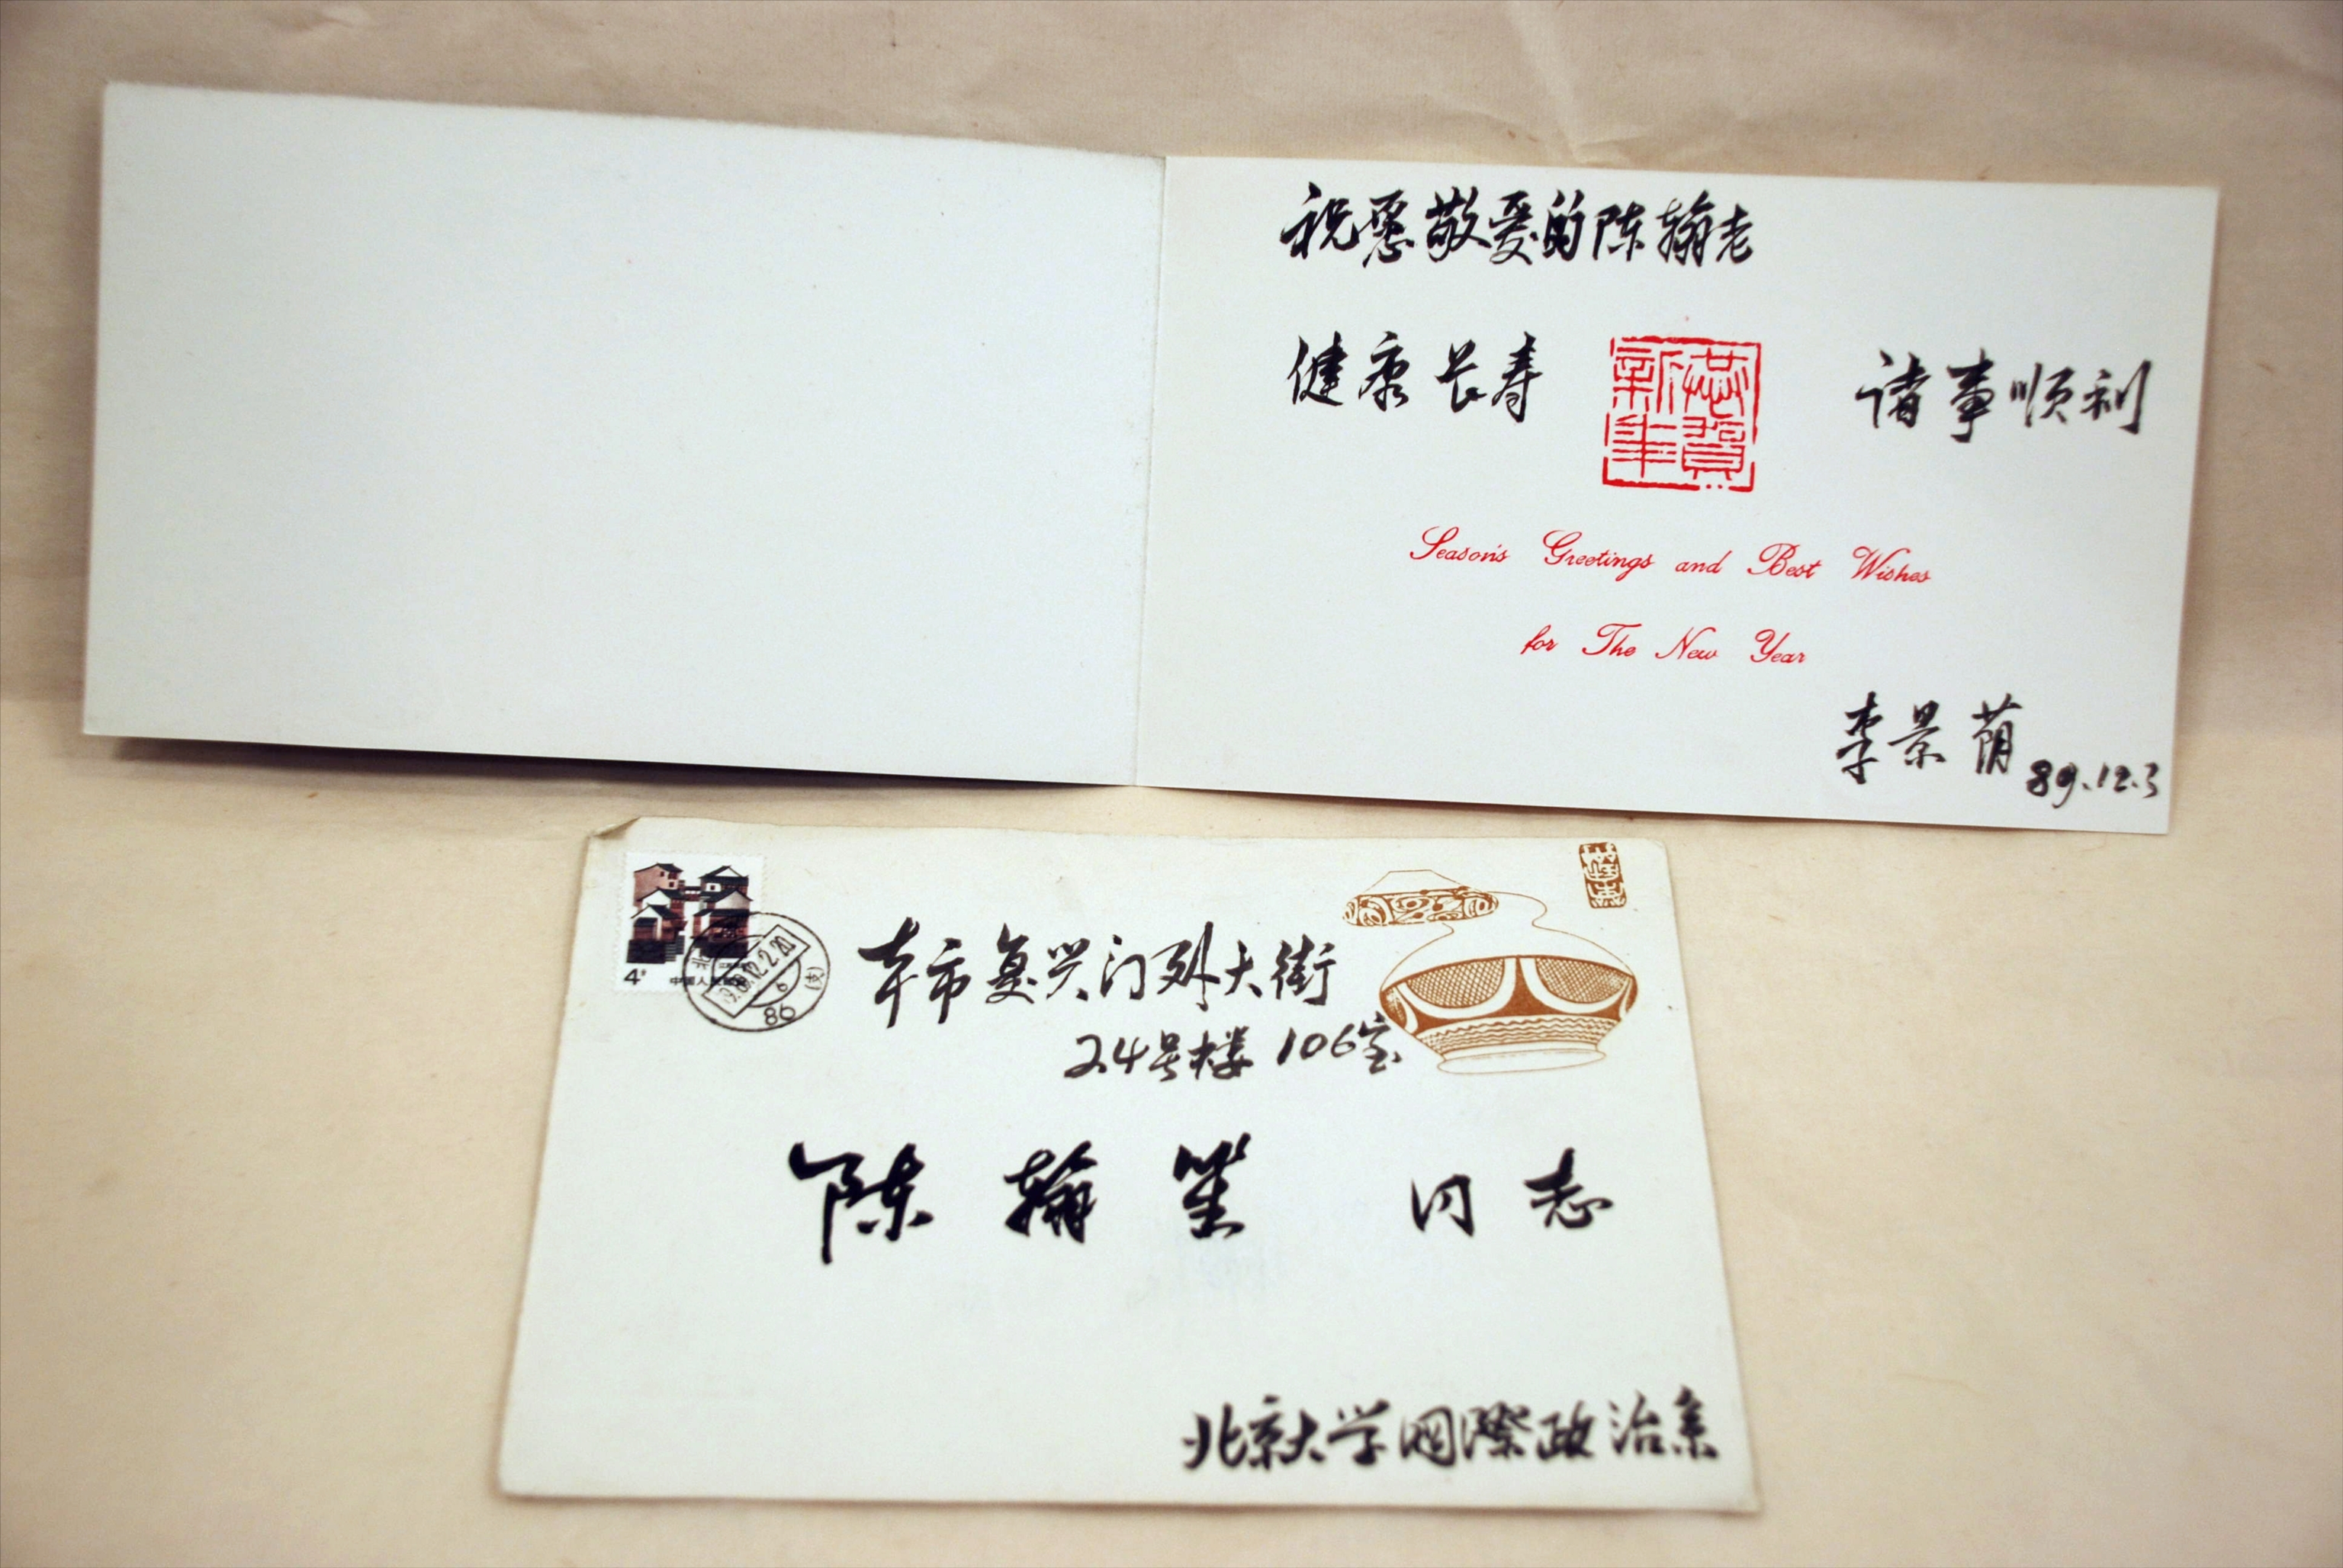 祝愿敬爱的陈翰老
健康长寿 诸事顺利
恭贺
新年
Season's Greetings and Best Wishes
for The New Year
李景荫 89.12.3
4分
中国人民邮政
86 (支)
本市复兴门外大街
24号楼 106室
陈翰笙 同志
北京大学国際政治系